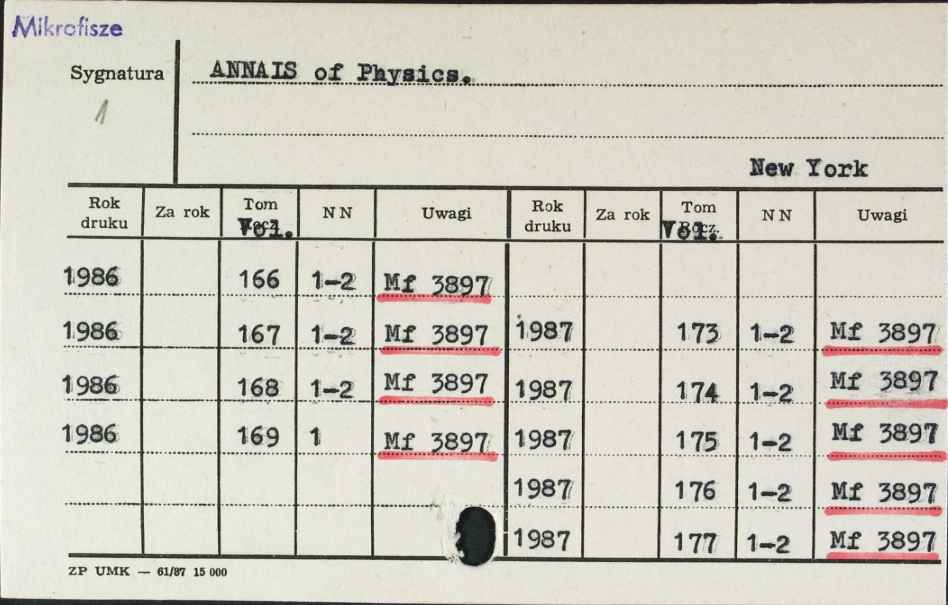 Mikrofisze
Sygnatura ANNAIS of Physics.
1
New York
Rok druku Za rok Tom Vol. NN Uwagi Rok druku Za rok Tom Vol. NN Uwagi
1986 166 1-2 Mf 3897
1986 167 1-2 Mf 3897 1987 173 1-2 Mf 3897
1986 168 1-2 Mf 3897 1987 174 1-2 Mf 3897
1986 169 1 Mf 3897 1987 175 1-2 Mf 3897
1987 176 1-2 Mf 3897
1987 177 1-2 Mf 3897
ZP UMK — 61/87 15 000